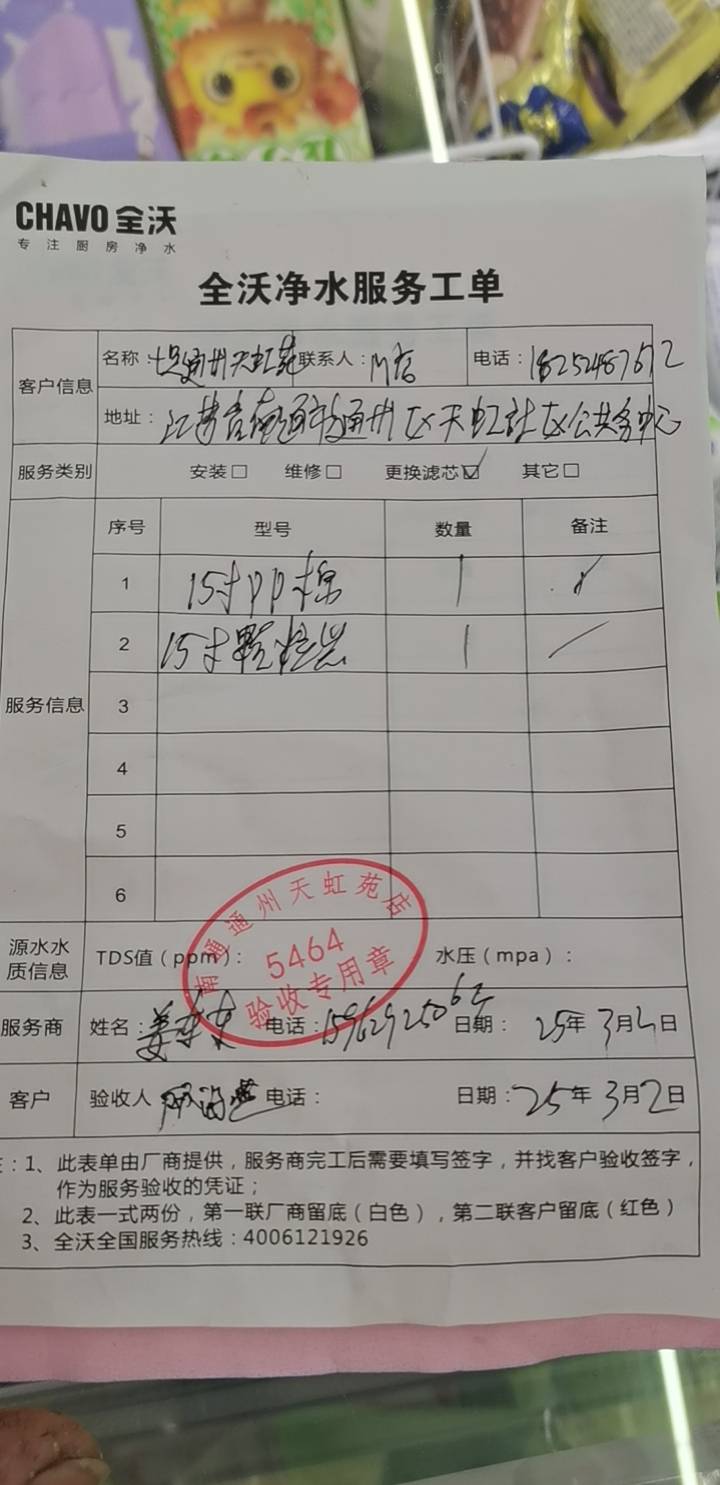 CHAVO 全沃
专注厨房净水
全沃净水服务工单
客户信息 名称：通州天虹苑 联系人：门店 电话：18252487672
地址：江苏省南通市通州区天虹社区公共服务中心
服务类别 安装□ 维修□ 更换滤芯☑ 其它□
服务信息 序号 型号 数量 备注
1 15寸PP棉 1
2 15寸颗粒炭 1
3
4
5
6
南通通州天虹苑店
5464
验收专用章
源水水质信息 TDS值（ppm）： 水压（mpa）：
服务商 姓名：姜 电话：159629250 日期：25年3月2日
客户 验收人 电话： 日期：25年3月2日
：1、此表单由厂商提供，服务商完工后需要填写签字，并找客户验收签字，
作为服务验收的凭证；
2、此表一式两份，第一联厂商留底（白色），第二联客户留底（红色）
3、全沃全国服务热线：4006121926